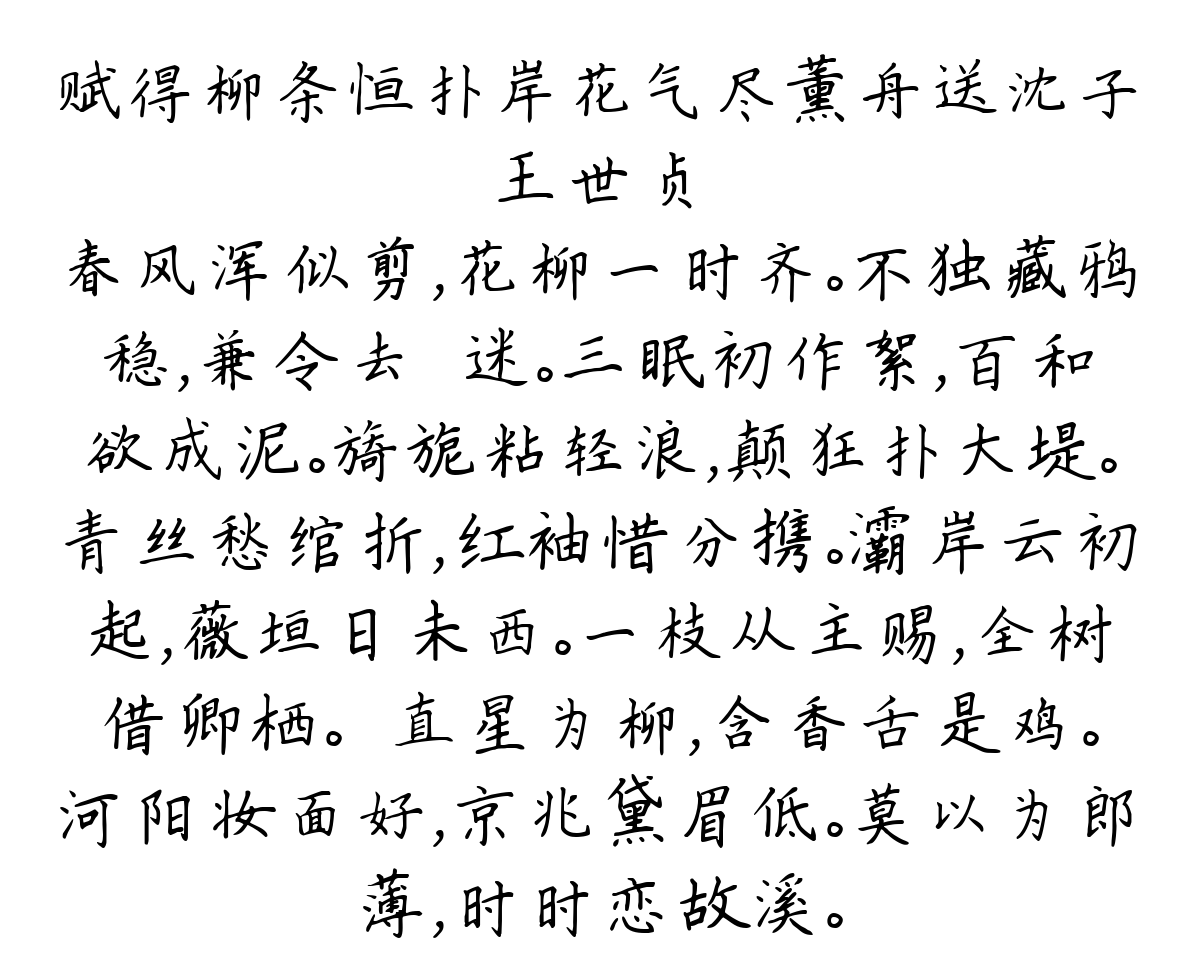 赋得柳条恒扑岸花气尽薰舟送沈子
王世贞
春风浑似剪,花柳一时齐。不独藏鸦
稳,兼令去 迷。三眠初作絮,百和
欲成泥。旖旎粘轻浪,颠狂扑大堤。
青丝愁绾折,红袖惜分携。灞岸云初
起,薇垣日未西。一枝从主赐,全树
借卿栖。直星为柳,含香舌是鸡。
河阳妆面好,京兆黛眉低。莫以为郎
薄,时时恋故溪。